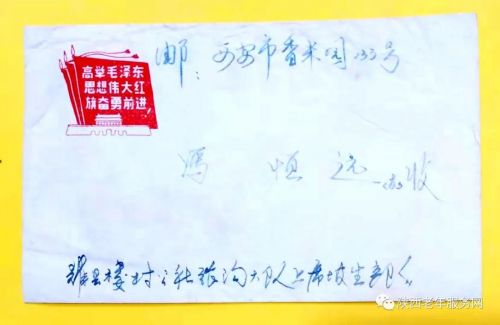 高举毛泽东
思想伟大红
旗奋勇前进
邮：西安市香米园 133号
冯恒远 收
县楼村公社张沟大队上席坡生产队
陕西老年服务网